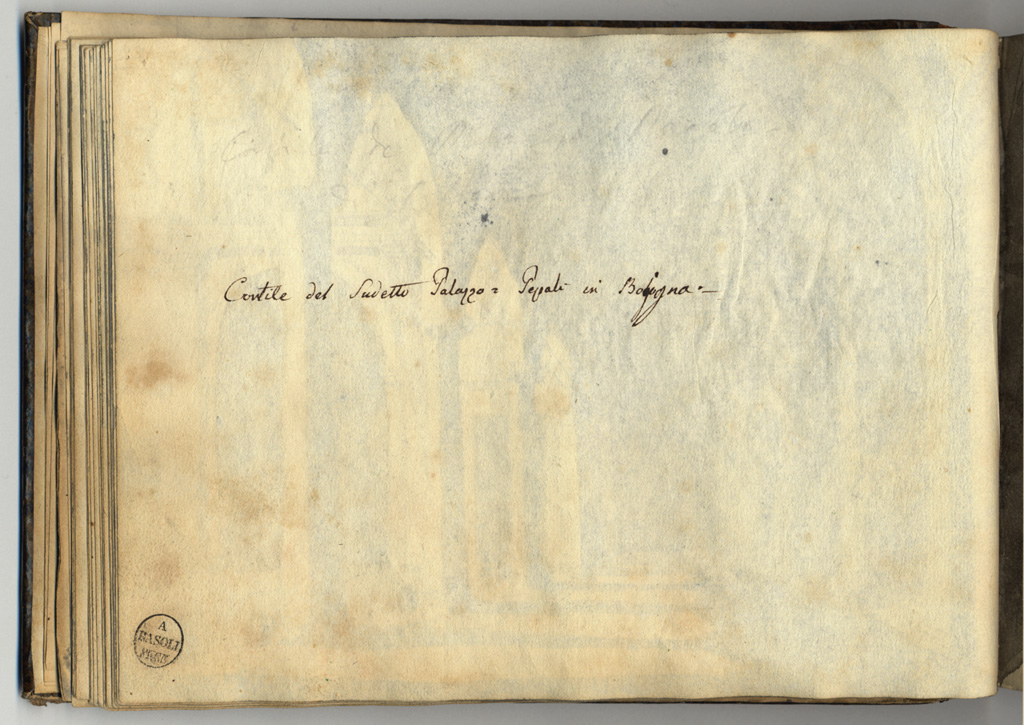 Cortile del Sudetto Palazzo = Pepoli in Bologna =
A
BASOLI